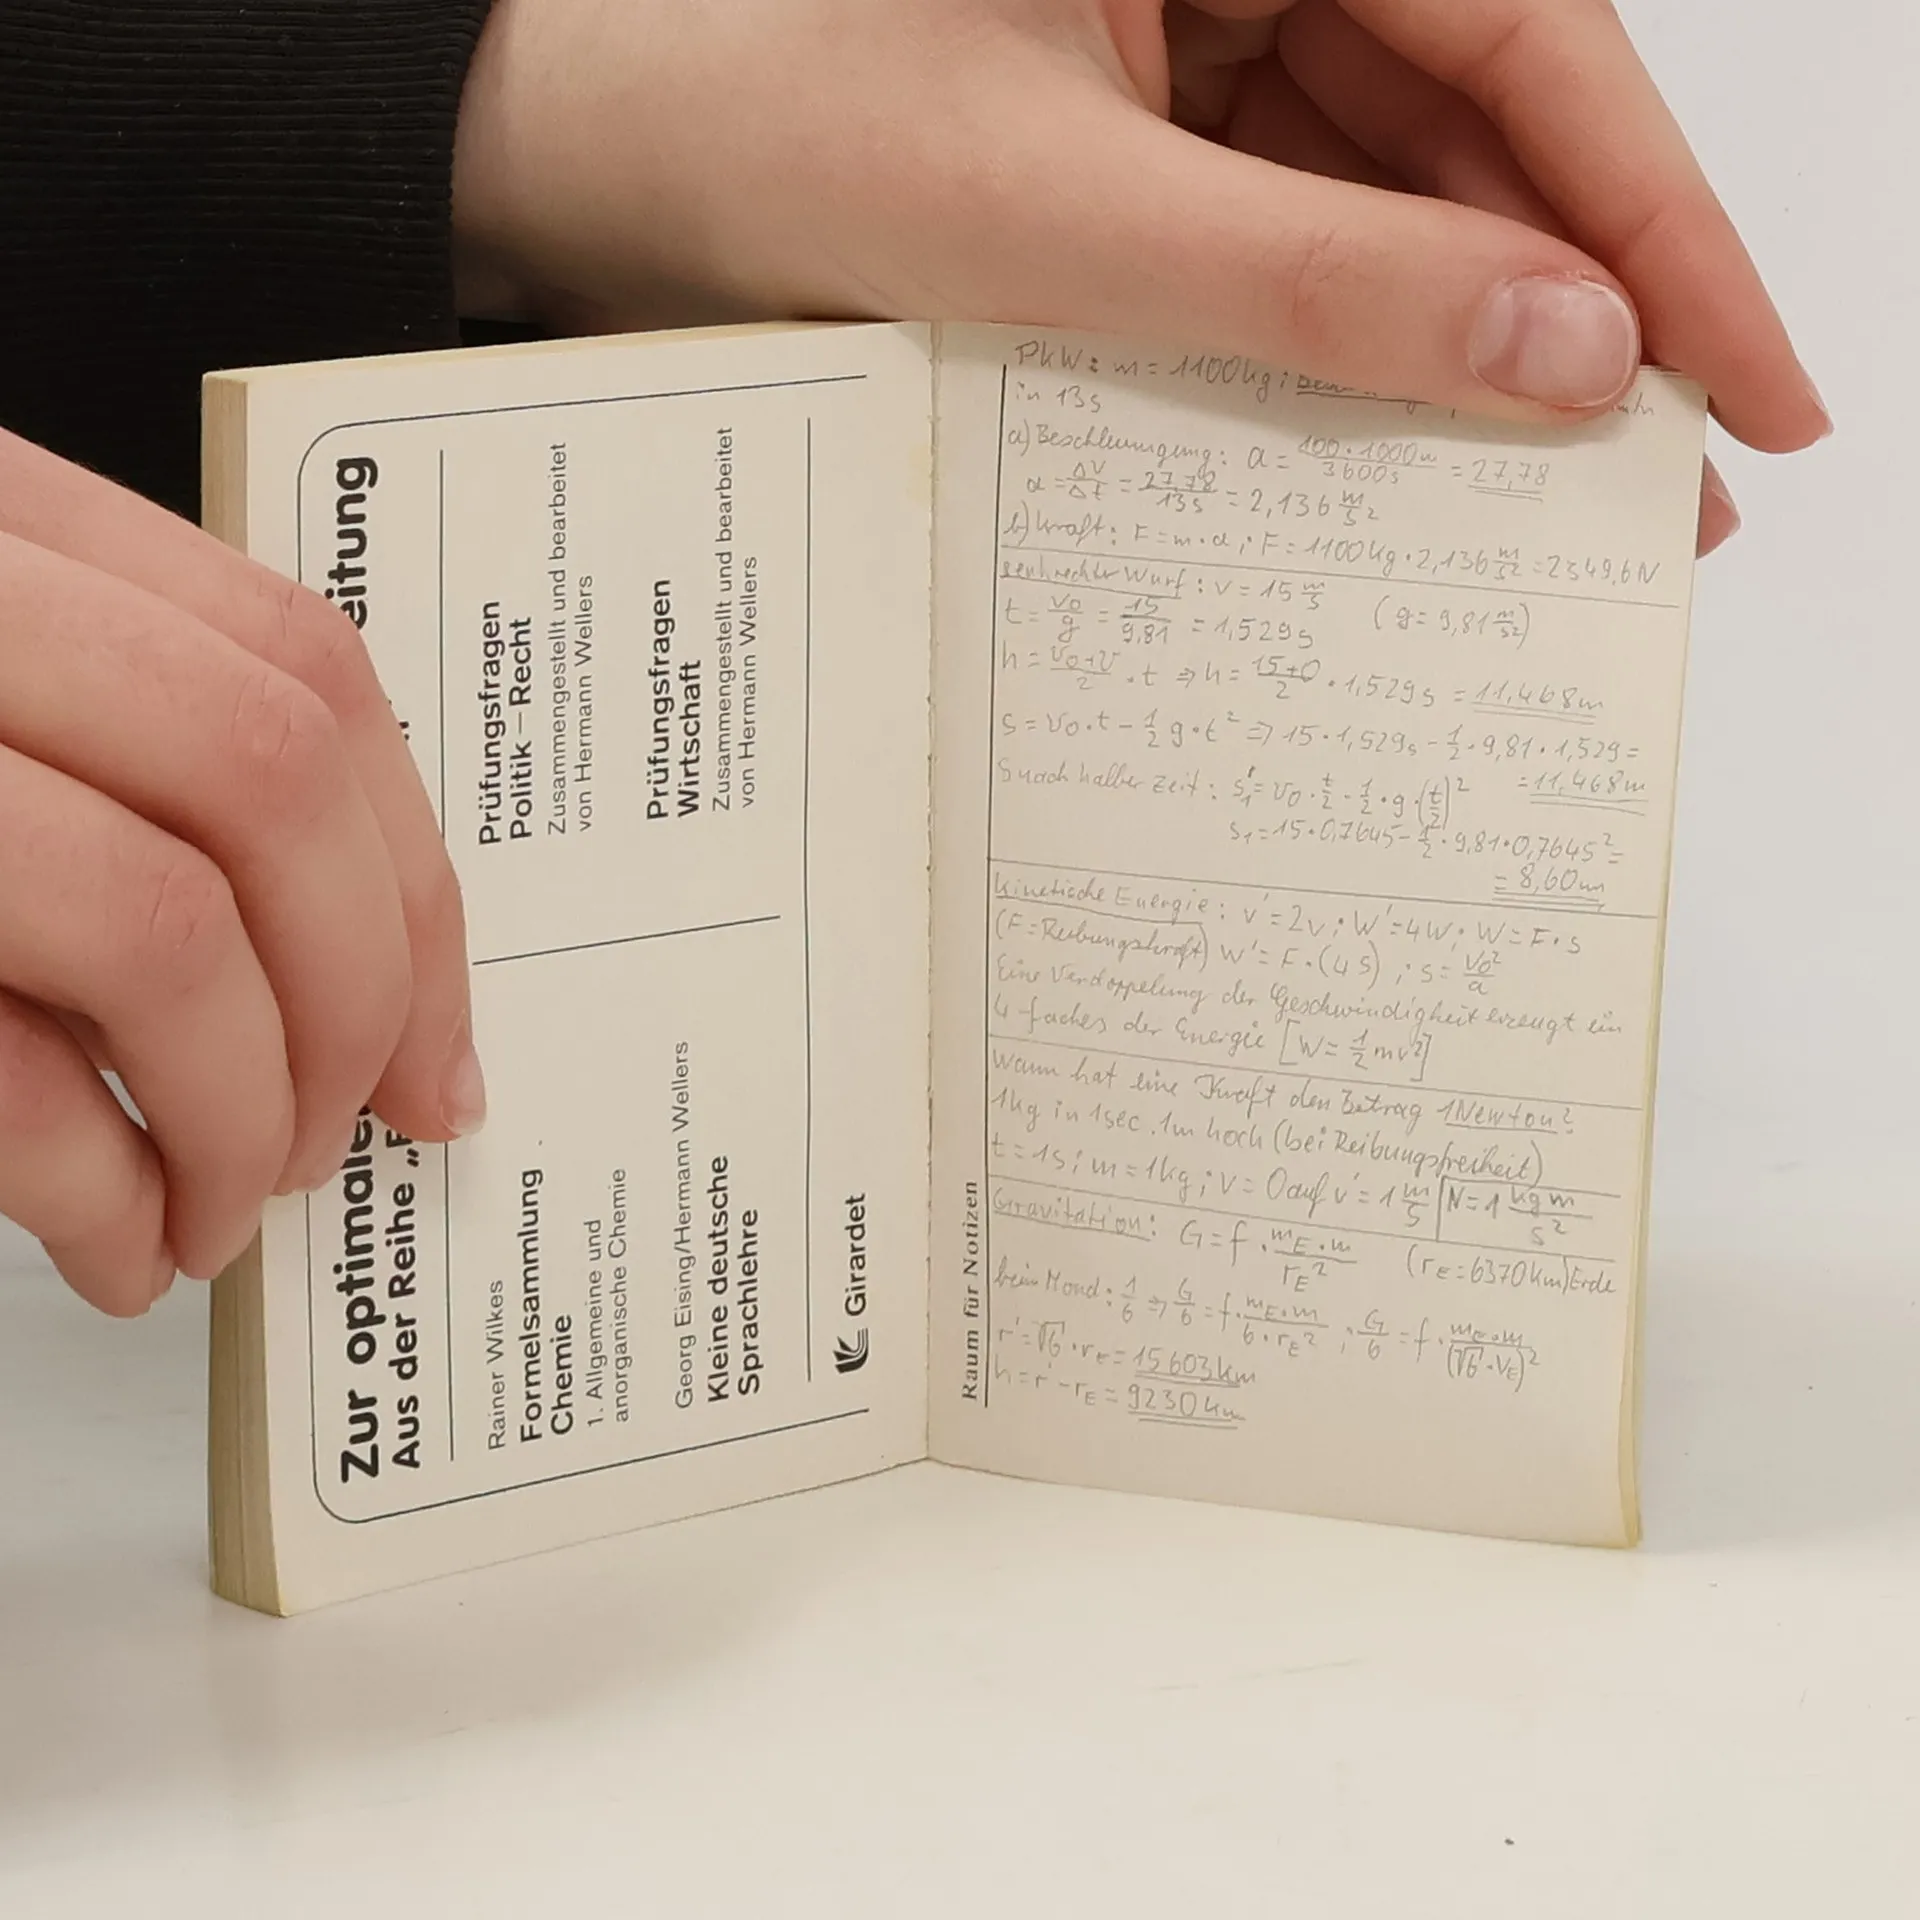 Zur optimale eitung
Aus der Reihe „
Rainer Wilkes
Formelsammlung
Chemie
1. Allgemeine und
anorganische Chemie
Georg Eising/Hermann Wellers
Kleine deutsche
Sprachlehre
Prüfungsfragen
Politik – Recht
Zusammengestellt und bearbeitet
von Hermann Wellers
Prüfungsfragen
Wirtschaft
Zusammengestellt und bearbeitet
von Hermann Wellers
Girardet
Raum für Notizen
PKW: m = 1100kg;
in 13s
a) Beschleunigung: a = 100·1000m / 3600s = 27,78
a = Δv/Δt = 27,78/13s = 2,136 m/s²
b) Kraft: F = m·a; F = 1100kg·2,136 m/s² = 2349,6N
senkrechter Wurf: v = 15 m/s (g = 9,81 m/s²)
t = v₀/g = 15/9,81 = 1,529s
h = (v₀+v)/2 · t ⇒ h = (15+0)/2 · 1,529s = 11,468m
s = v₀·t − 1/2 g·t² ⇒ 15·1,529s − 1/2·9,81·1,529 =
= 11,468m
s nach halber Zeit: s₁' = v₀·t/2 − 1/2·g·(t/2)²
s₁ = 15·0,7645 − 1/2·9,81·0,7645² =
= 8,60m
kinetische Energie: v' = 2v; W' = 4W; W = F·s
(F = Reibungskraft) W' = F·(4s); s = v₀²/a
Eine Verdoppelung der Geschwindigkeit erzeugt ein
4-faches der Energie [W = 1/2 mv²]
Wann hat eine Kraft den Betrag 1Newton?
1kg in 1sec. 1m hoch (bei Reibungsfreiheit)
t = 1s; m = 1kg; v = 0 auf v' = 1 m/s N = 1 kgm/s²
Gravitation: G = f · mE·m / rE² (rE = 6370km) Erde
beim Mond: 1/6 ⇒ G/6 = f · mE·m / 6·rE²; G/6 = f · mE·m / (√6·rE)²
r' = √6·rE = 15603km
h = r' − rE = 9230km